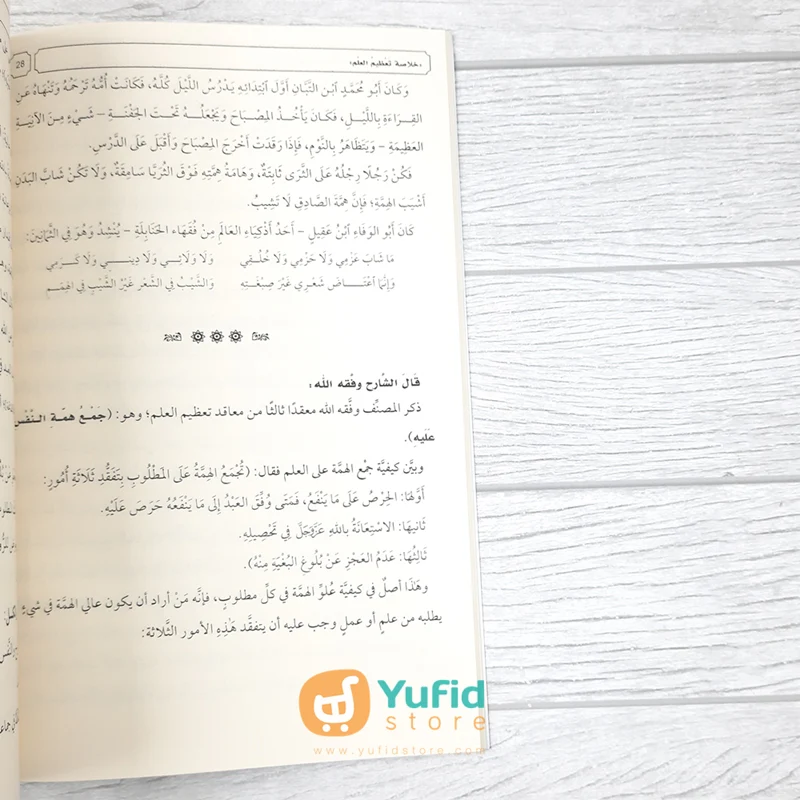 «خلاصة تعظيم العلم»
26
وَكَانَ أَبُو مُحَمَّدٍ ٱبْنُ التَّبَّانِ أَوَّلَ ٱبْتِدَائِهِ يَدْرُسُ اللَّيْلَ كُلَّهُ، فَكَانَتْ أُمُّهُ تَرْحَمُهُ وَتَنْهَاهُ عَنِ
القِـرَاءَةِ بِاللَّيْـلِ، فَكَانَ يَأْخُـذُ المِصْبَاحَ وَيَجْعَلُـهُ تَحْـتَ الجَفْنَـةِ – شَـيْءٍ مِـنَ الآنِيَـةِ
العَظِيمَةِ – وَيَتَظَاهَرُ بِالنَّوْمِ، فَإِذَا رَقَدَتْ أَخْرَجَ المِصْبَاحَ وَأَقْبَلَ عَلَى الدَّرْسِ.
فَكُنْ رَجُلًا رِجْلُهُ عَلَى الثَّرَى ثَابِتَةٌ، وَهَامَةُ هِمَّتِهِ فَوْقَ الثُّرَيَّا سَامِقَةٌ، وَلَا تَكُنْ شَابَّ البَدَنِ
أَشْيَبَ الهِمَّةِ؛ فَإِنَّ هِمَّةَ الصَّادِقِ لَا تَشِيبُ.
كَانَ أَبُو الوَفَاءِ ٱبْنُ عَقِيلٍ – أَحَدُ أَذْكِيَاءِ العَالَمِ مِنْ فُقَهَاءِ الحَنَابِلَةِ – يُنْشِدُ وَهُوَ فِي الثَّمَانِينَ:
مَا شَابَ عَزْمِي وَلَا حَزْمِي وَلَا خُلُـقِي وَلَا وَلَائِـي وَلَا دِينِـي وَلَا كَـرَمِي
وَإِنَّمَا ٱعْتَـــاضَ شَعْرِي غَيْرَ صِبْغَتِهِ وَالشَّيْبُ فِي الشَّعْرِ غَيْرُ الشَّيْبِ فِي الهِمَـمِ
قَالَ الشَّارح وفَّقه الله:
ذكر المصنِّف وفَّقه الله معقدًا ثالثًا من معاقد تعظيم العلم؛ وهو: (جَمْـعُ هِمَّـةِ الـنَّفْسِ
عَلَيهِ).
وبيَّن كيفيَّة جمْع الهمَّة على العلم فقال: (تُجْمَعُ الهِمَّةُ عَلَى المَطْلُوبِ بِتَفَقُّدِ ثَلَاثَةِ أُمُورٍ:
أَوَّلُهَا: الحِرْصُ عَلَى مَا يَنْفَعُ، فَمَتَى وُفِّقَ العَبْدُ إِلَى مَا يَنْفَعُهُ حَرَصَ عَلَيْهِ.
ثَانِيهَا: الاسْتِعَانَةُ بِاللهِ عَزَّوَجَلَّ فِي تَحْصِيلِهِ.
ثَالِثُهَا: عَدَمُ العَجْزِ عَنْ بُلُوغِ البُغْيَةِ مِنْهُ).
وهَذَا أصلٌ في كيفيَّة عُلوِّ الهمَّة في كلِّ مطلوبٍ، فإنَّه مَنْ أراد أن يكون عالي الهمَّة في شيءٍ
يطلبه من علمٍ أو عملٍ وجب عليه أن يتفقَّد هَذِهِ الأمور الثَّلاثة:
Yufid
store
www.yufidstore.com